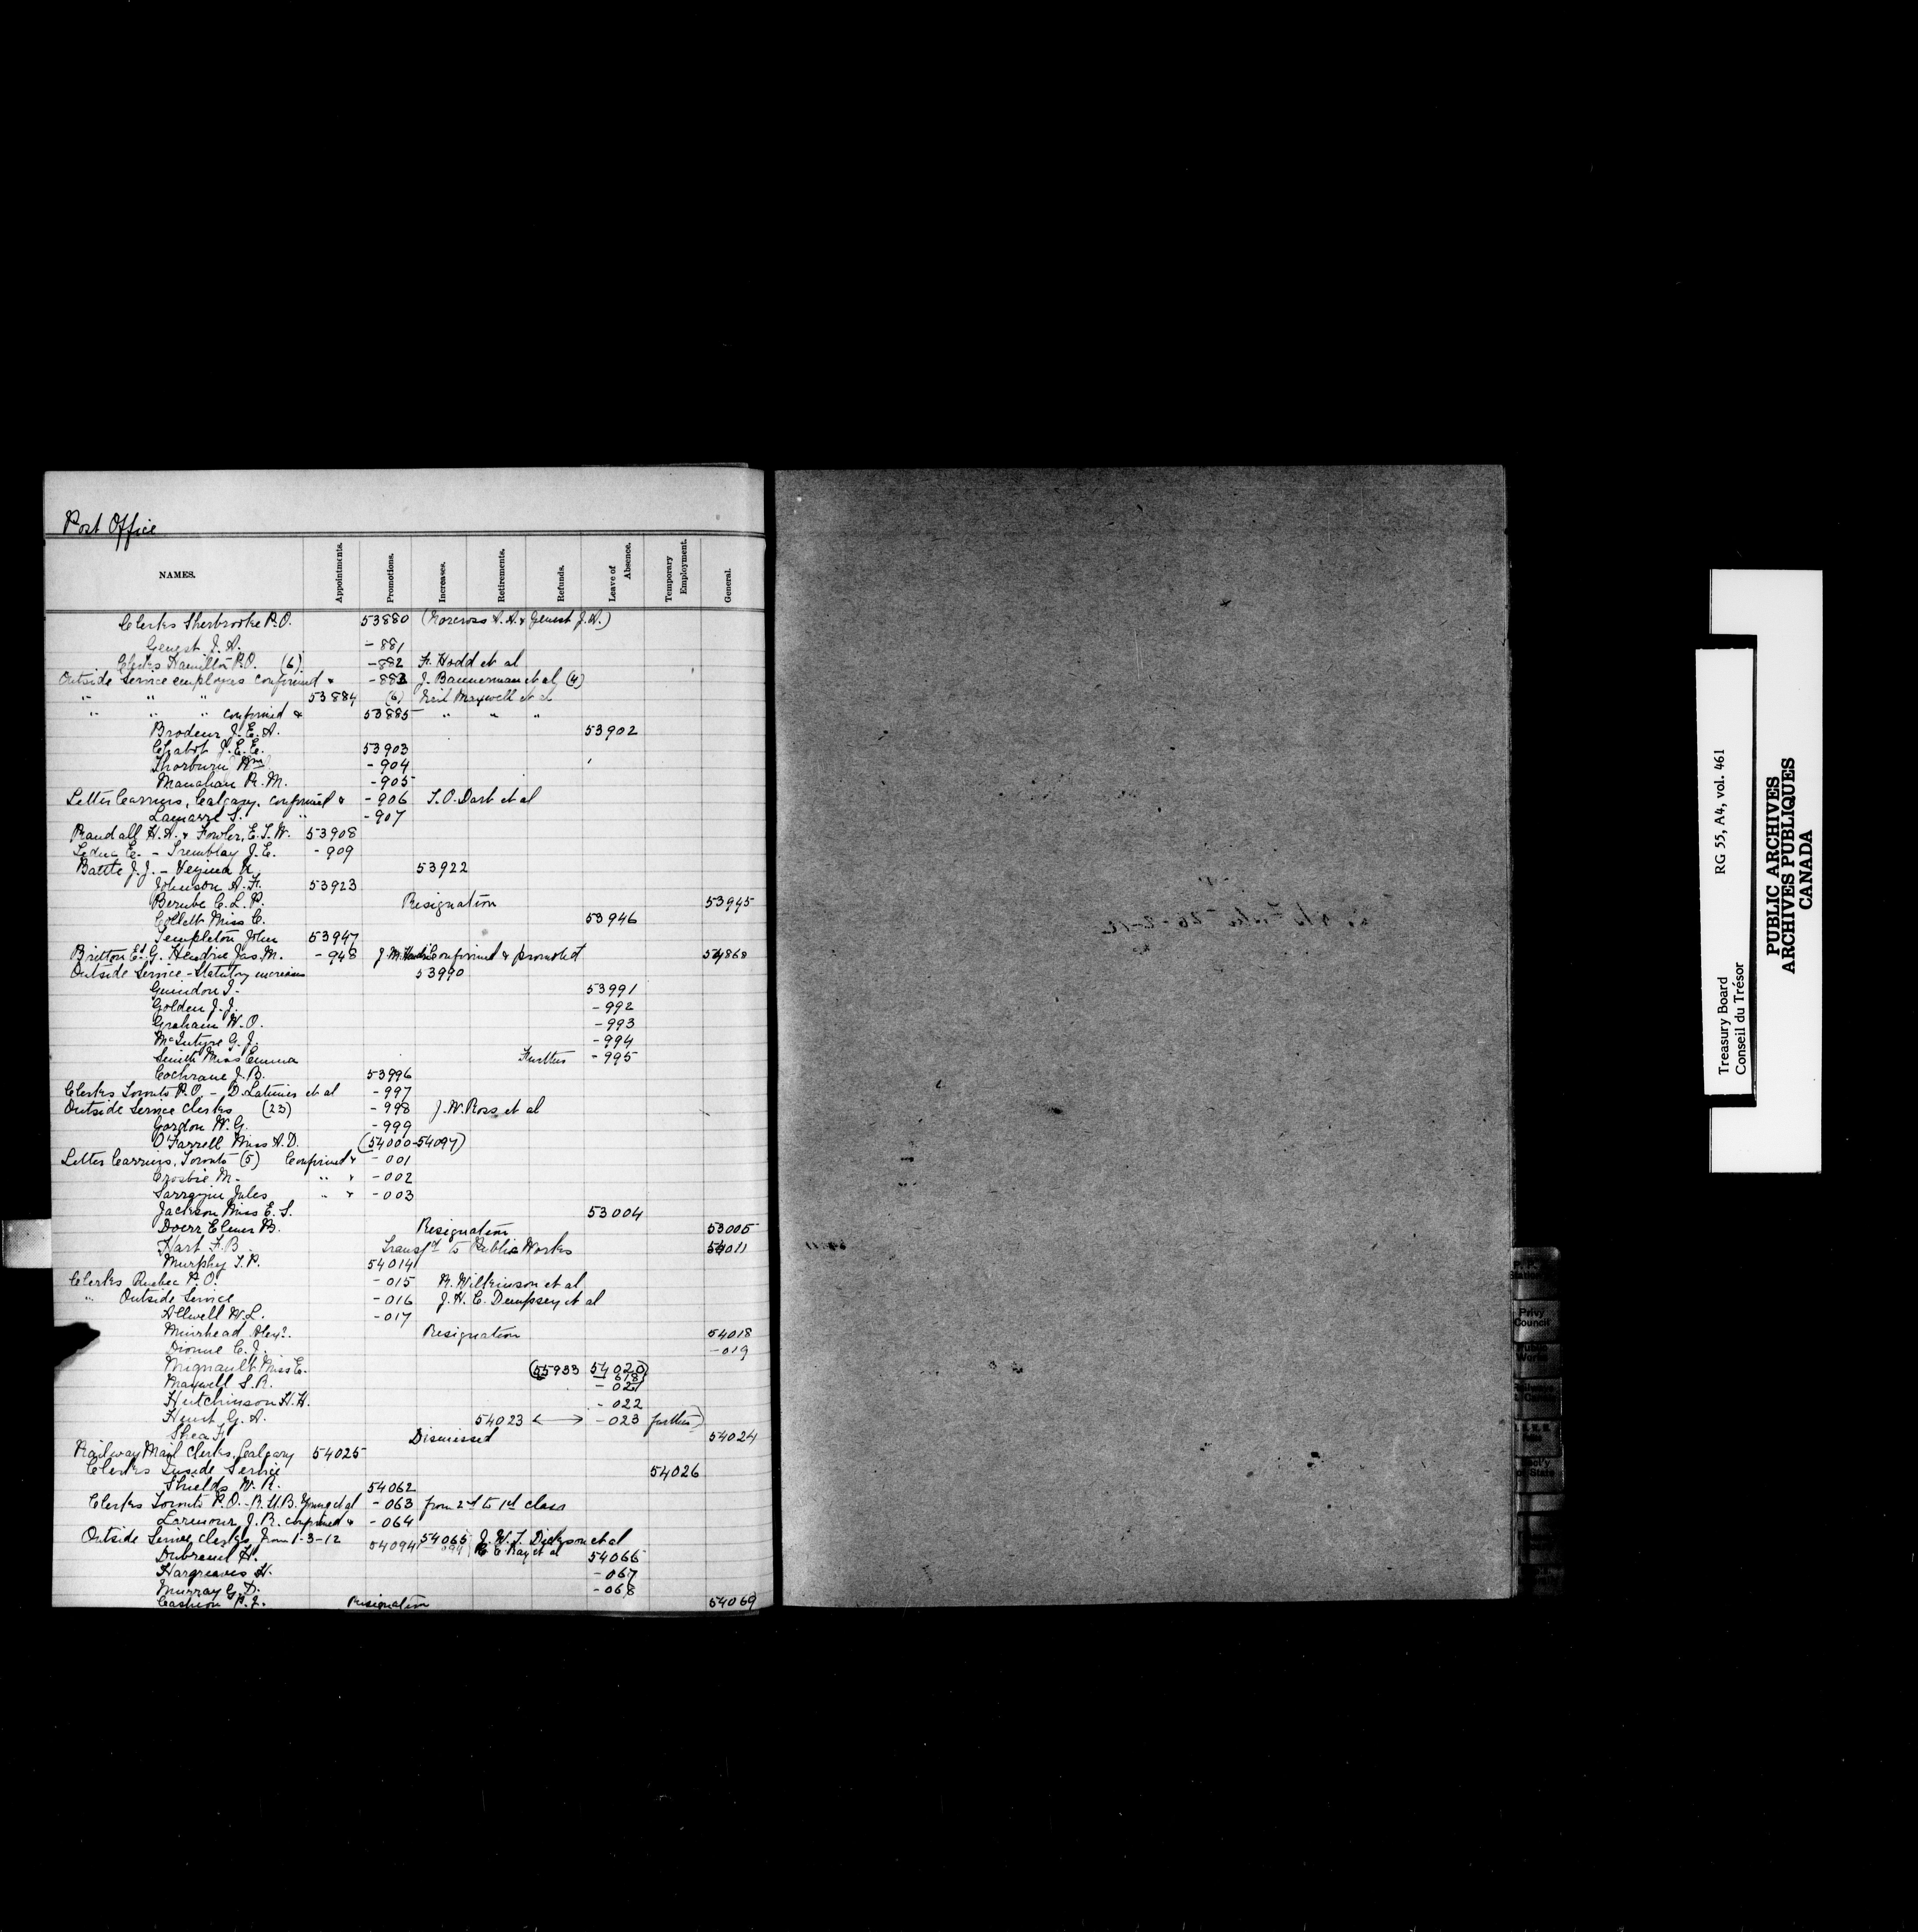 Post Office
NAMES. Appointments. Promotions. Increases. Retirements. Refunds. Leave of Absence. Temporary Employment. General.
Clerks Sherbrooke P.O. 53880 (Norcross A. A. & Genest J. A.)
Genest J. A. -881
Clerks Hamilton P.O. (6) -882 F. Hodd et al
Outside Service employees confirmed & -883 J. Bannerman et al (4)
" " " 53884 (6) Neil Maxwell et al
" " " confirmed & 53885 " " "
Brodeur J. E. A. 53902
Chabot J. E. E. 53903
Thorburn Wm -904
Manahan R. M. -905
Letter Carriers, Calgary, confirmed & -906 T. O. Dart et al
Lamarre S. " -907
Randall H. A. & Fowler, E. T. W. 53908
Leduc E. - Tremblay J. E. -909
Battle J. J. - 53922
Johnson A. F. 53923
Berube C. L. P. Resignation 53945
Collett Miss C. 53946
Templeton John 53947
Britton Ed. G. Hendrie Jas. M. -948 J. M. Hendrie Confirmed & promoted 54868
Outside Service - Statutory increases 53990
Guindon I. 53991
Golden J. J. -992
Graham W. O. -993
McIntyre G. J. -994
Smith Miss Emma Further -995
Cochrane J. B. 53996
Clerks Toronto P.O. - D. Latimer et al -997
Outside Service Clerks (23) -998 J. W. Ross et al
Gordon W. G. -999
O'Farrell Miss A. D. (54000-54097)
Letter Carriers, Toronto (5) Confirmed & -001
Crosbie M. " & -002
Sarrazin Jules " & -003
Jackson Miss E. S. 53004
Doerr Elmer B. Resignation 53005
Hart F. B. Transfd to Public Works 54011
Murphy T. P. 54014
Clerks Quebec P.O. -015 R. Wilkinson et al
" Outside Service -016 J. H. C. Dempsey et al
Allwell W. L. -017
Muirhead Alexr. Resignation 54018
Dionne C. J. -019
Mignault Miss E. (55933 54020)
Maxwell S. R. - 021
Hutchinson H. H. -022
Hurst G. A. 54023 ⟷ -023 further)
Shea F. Dismissed 54024
Railway Mail Clerks, Calgary 54025
Clerks Inside Service 54026
Shields W. R. 54062
Clerks Toronto P.O. - R. U. B. Young et al -063 from 2nd to 1st class
Larmour, J. R. confirmed & -064
Outside Service Clerks from 1-3-12 54094 54065 J. W. T. Dickson et al
R. C. Ray et al
Dubreuil H. 54066
Hargreaves H. -067
Murray G. D. -068
Cashion P. J. Resignation 54069
Privy Council
Public Works
of State
Treasury Board RG 55, A4, vol. 461
Conseil du Trésor
PUBLIC ARCHIVES
ARCHIVES PUBLIQUES
CANADA